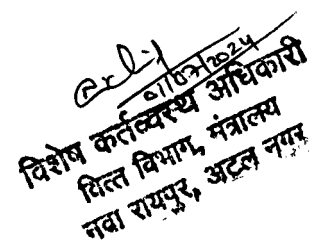 01/07/2024
विशेष कर्तव्यस्थ अधिकारी
वित्त विभाग, मंत्रालय
नवा रायपुर, अटल नगर